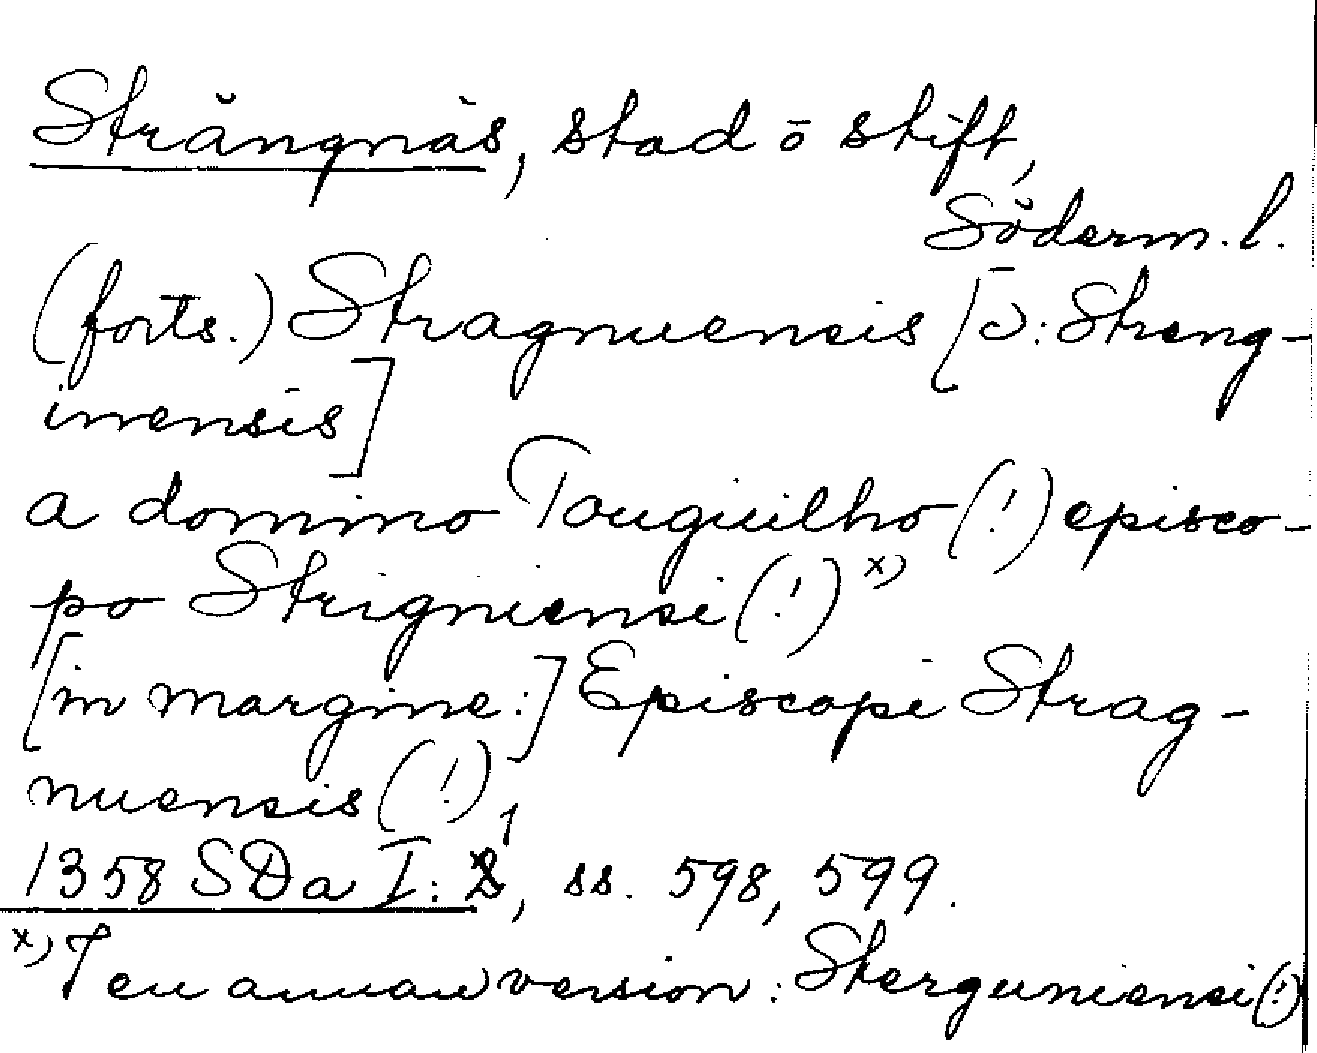 Strängnäs, stad ō stift,
Söderm.l.
(forts.) Stragnuensis [ɔ: Streng-
inensis]
a domino Touguilho (!) episco-
po Strigniensi (!) x)
[in margine:] Episcopi Strag-
nuensis (!),
1358 SDa I: 1, ss. 598, 599.
x) I en annan version: Sterguniensi (!)